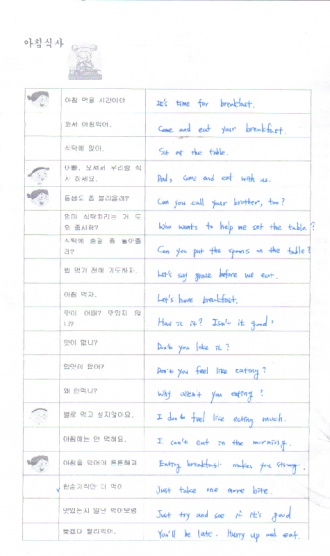 아침식사
아침 먹을 시간이야
It's time for breakfast.
와서 아침먹어.
Come and eat your breakfast.
식탁에 앉아.
Sit at the table.
아빠, 오셔서 우리랑 식
사 하세요.
Dad, come and eat with us.
동생도 좀 불러올래?
Can you call your brother, too?
엄마 식탁차리는 거 도
와 줄사람?
Who wants to help me set the table?
식탁에 숟갈 좀 놓아줄
래?
Can you put the spoons on the table?
밥 먹기 전에 기도하자.
Let's say grace before we eat.
아침 먹자.
Let's have breakfast.
맛이 어때? 맛있지 않
니?
How is it? Isn't it good?
맛이 없니?
Don't you like it?
밥맛이 없어?
Don't you feel like eating?
왜 안먹니?
Why aren't you eating?
별로 먹고 싶지않아요.
I don't feel like eating much.
아침에는 안 먹혀요.
I can't eat in the morning.
아침을 먹어야 튼튼해져
Eating breakfast makes you strong.
한숟가락만 더 먹어
Just take one more bite.
맛있는지 일단 먹어보렴
Just try and see if it's good
늦겠다 빨리먹어.
You'll be late. Hurry up and eat.